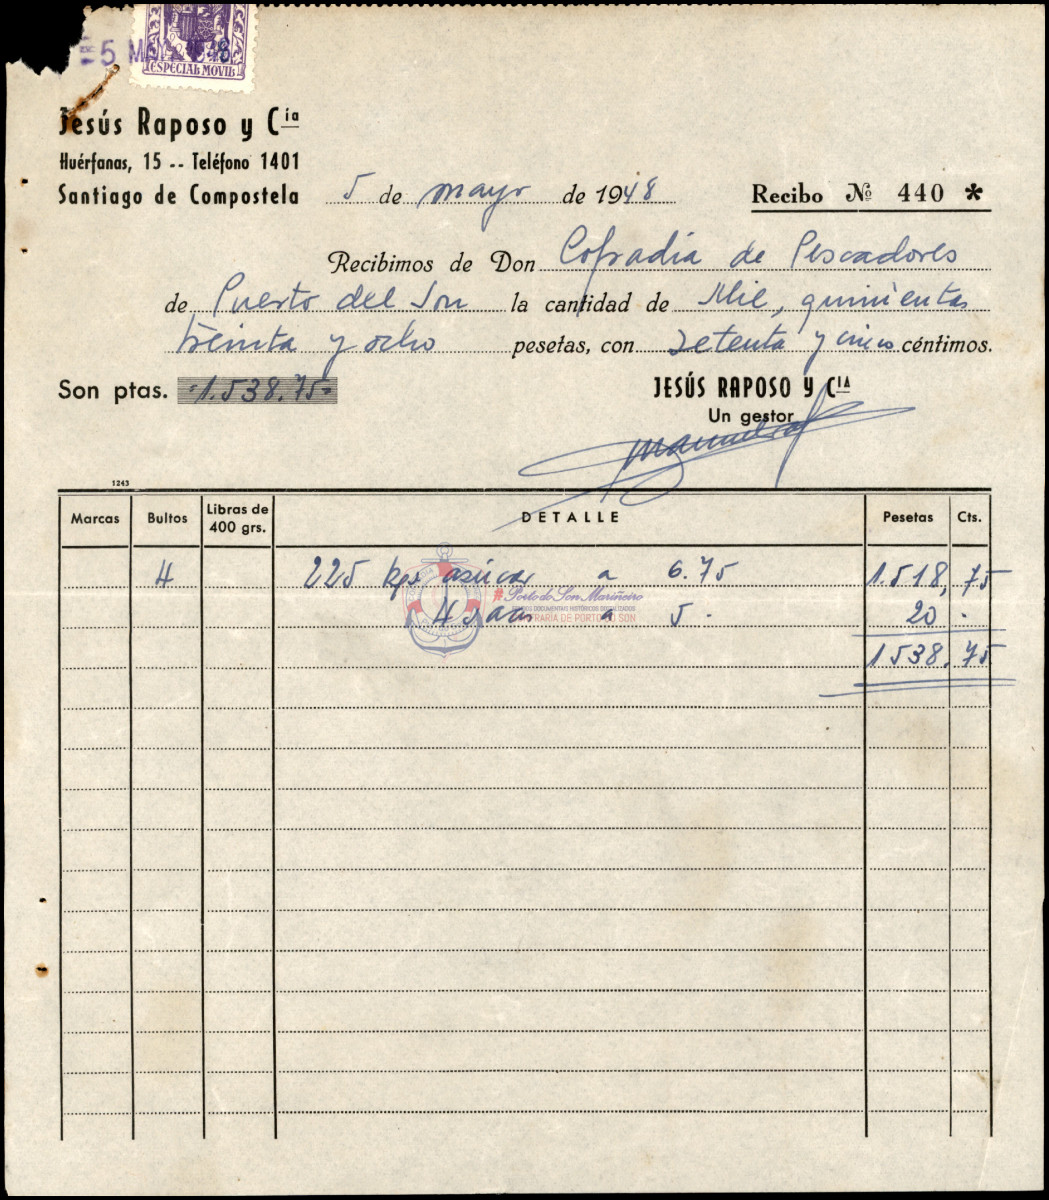 5 MAY. 1948
ESPECIAL MOVIL
Jesús Raposo y Cía
Huérfanas, 15 -- Teléfono 1401
Santiago de Compostela
5 de mayo de 1948
Recibo Nº 440 *
Recibimos de Don Cofradía de Pescadores
de Puerto del Son la cantidad de Mil, quinientas
treinta y ocho pesetas, con setenta y cinco céntimos.
Son ptas. =1.538.75=
JESÚS RAPOSO Y CÍA
Un gestor
1243
Marcas Bultos Libras de 400 grs. DETALLE Pesetas Cts.
4 225 kgs azúcar a 6.75 1.518,75
#Porto do Son Mariñeiro
4 sacos a 5. 20 .
FONDOS DOCUMENTAIS HISTÓRICOS DIXITALIZADOS
CONFRARÍA DE PORTO DO SON
1538,75